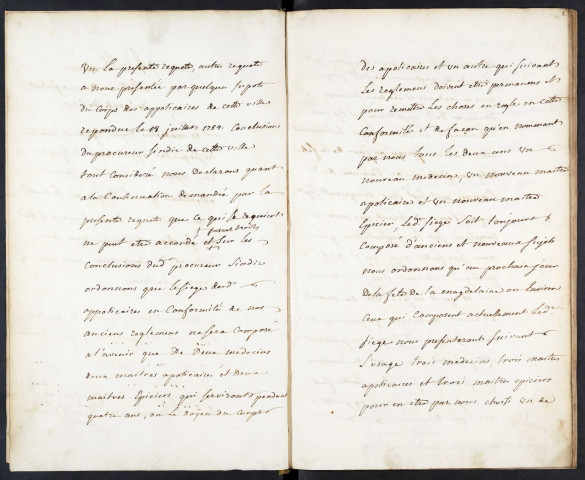 Vu la presente requete, autre requete
a nous presentée par quelque supots
du Corps des appoticaires de cette ville
repondue le 14 juillet 1784. Conclusions
du procureur sindic de cette ville
tout consideré nous Declarons quant
a la Continuation demandée par la
presente requete que ce qui se requiert
ne peut etre accordé et sur les
Conclusions dud. procureur Sindic
ordonnons que le siege desd.
appoticaires en Conformité de nos
anciens reglemens ne sera Composé
a l'avenir que De Deux medecins
deux maitres apoticaire et deux
maitres Epiciers qui serviront pendant
quatre ans, ou le Doyen du Corps
des apoticaires et un autre qui suivant
les reglemens doivent etre permanens et
pour remettre les choses en regle en cette
Conformité et de façon qu'en nommant
par nous tous les deux ans un
nouveau medecin, un nouveau maitre
apoticaire et un nouveau maitre
Epicier, Led. siege soit toujours
Composé d'anciens et nouveaux sujets
nous ordonnons qu'au prochain jour
de la fete de la magdelaine ou environ
ceux qui composent actuellement Led.
siege nous presenteront suivant
L'usage trois medecins, trois maitres
apoticaires et trois maitres epiciers
pour en etre par nous choisi un de